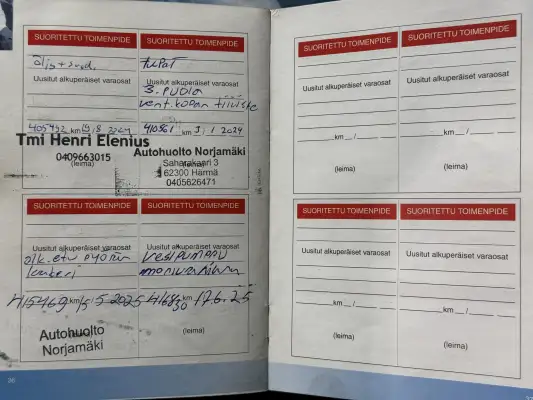 SUORITETTU TOIMENPIDE
Uusitut alkuperäiset varaosat
405492 km
Tmi Henri Elenius
(leima)
0409663015
SUORITETTU TOIMENPIDE
Uusitut alkuperäiset varaosat
tiiviste
km
2024
Autohuolto Norjamäki
(leima)
Saharakaari 3
62300 Härmä
0405626471
SUORITETTU TOIMENPIDE
Uusitut alkuperäiset varaosat
415469 km / 5 2025
(leima)
Autohuolto
Norjamäki
SUORITETTU TOIMENPIDE
Uusitut alkuperäiset varaosat
vesipumppu
km 17.6.25
(leima)
26
SUORITETTU TOIMENPIDE
Uusitut alkuperäiset varaosat
km /
(leima)
SUORITETTU TOIMENPIDE
Uusitut alkuperäiset varaosat
km /
(leima)
SUORITETTU TOIMENPIDE
Uusitut alkuperäiset varaosat
km /
(leima)
SUORITETTU TOIMENPIDE
Uusitut alkuperäiset varaosat
km /
(leima)
27